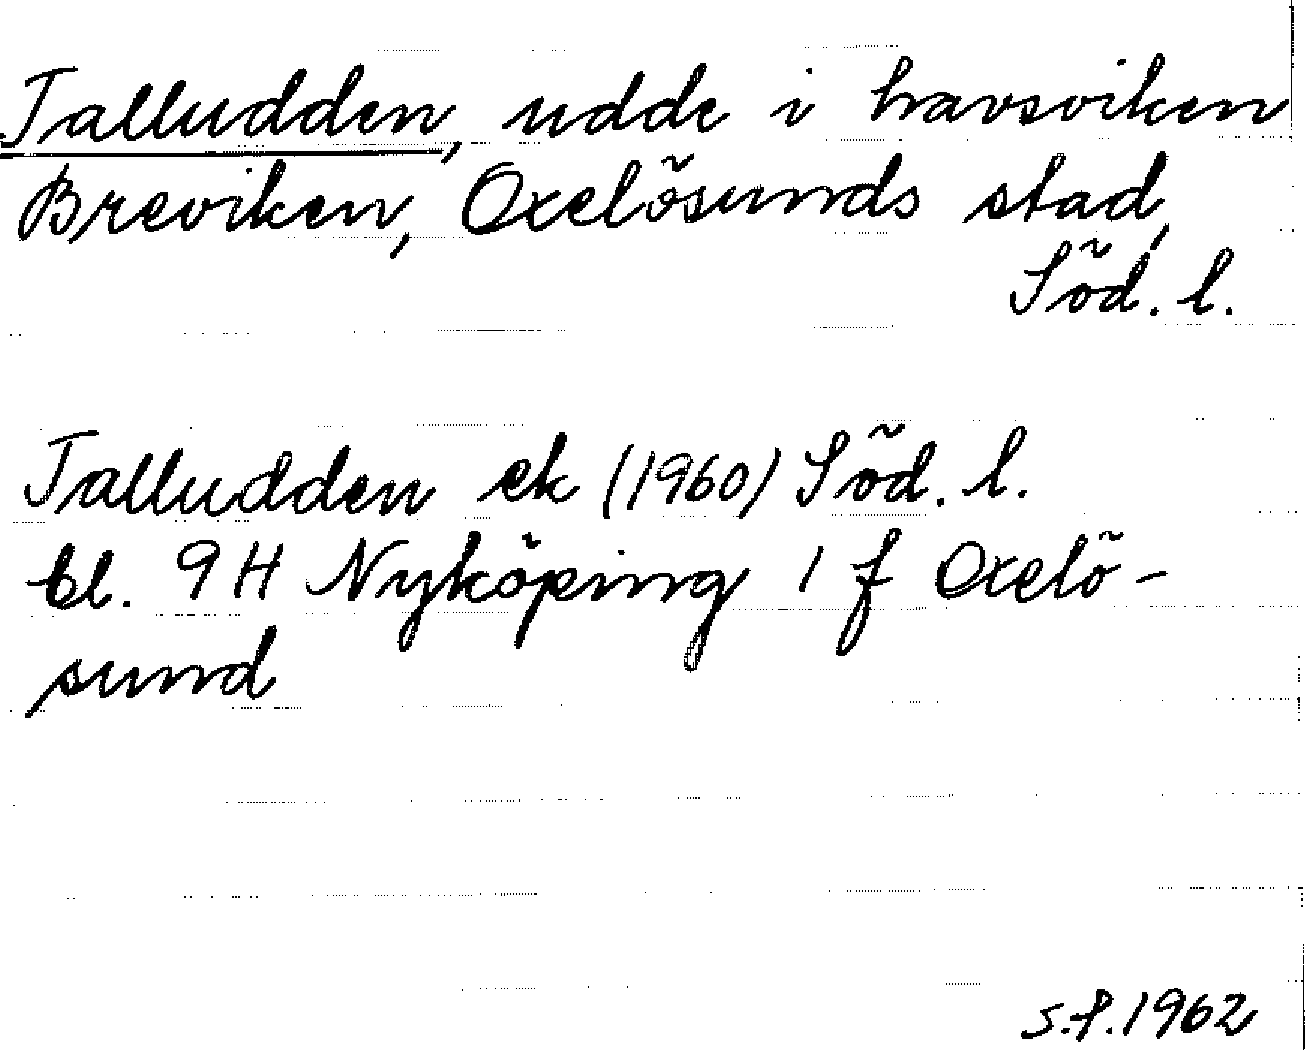 Talludden, udde i havsviken
Breviken, Oxelösunds stad,
Söd. l.
Talludden ek (1960) Söd. l.
bl. 9H Nyköping 1 f Oxelö-
sund
s.f. 1962